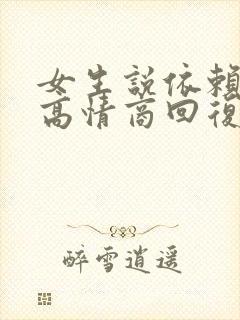 女生說依賴
高情商回復
醉雪逍遥